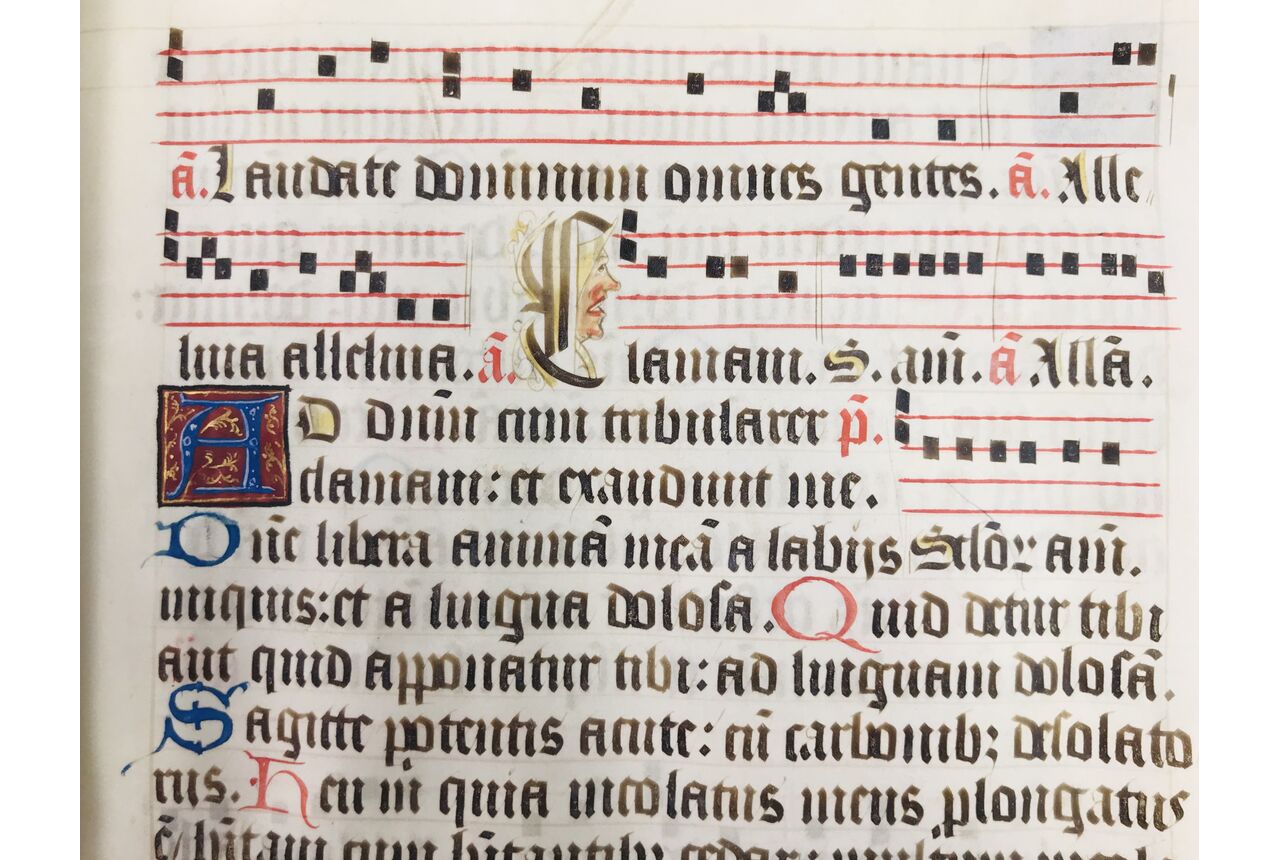 ā. Laudate dominum omnes gentes. ā. Alle
luia alleluia. ā. Clamaui. S. aūi. ā Allā.
AD dn̄m cum tribularer p̄.
clamaui: et exaudiuit me.
Dn̄e libera animā meā a labijs Sclōꝝ aūi.
iniquis: et a lingua dolosa. Quid detur tibi
aut quid apponatur tibi: ad linguam dolosā.
Sagitte potentis acute: cū carbonib; desolato
rijs. Heu m̄ quia incolatus meus ꝓlongatus
ē hītaui cum hītantib; cedar: multum